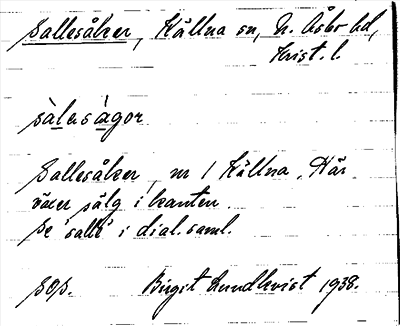 Sallesåker, Källna sn, N. Åsbo hd,
Krist. l.
sàlesågor
Sallesåker, nr 1 Källna. Här
växer sälg i kanten.
Se "salle" i dial. saml.
sOs. Birgit Lundkvist 1938.